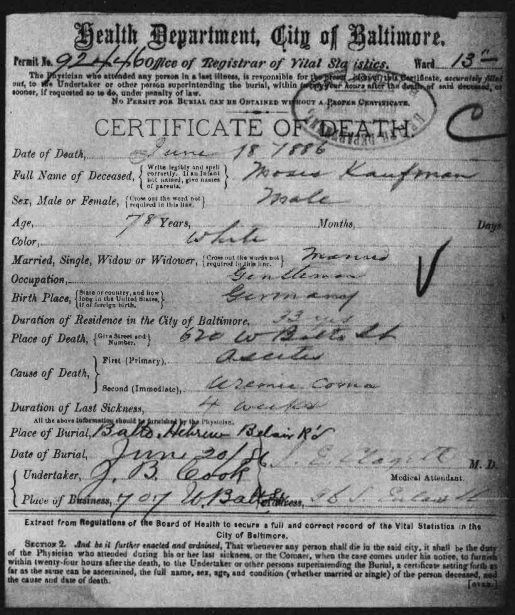 Health Department, City of Baltimore.
Permit No. 92446 Office of Registrar of Vital Statistics. Ward 13th
The Physician who attended any person in a last illness, is responsible for the presentation of this Certificate, accurately filled
out, to the Undertaker or other person superintending the burial, within twenty-four hours after the death of said deceased, or
sooner, if requested so to do, under penalty of law.
NO PERMIT FOR BURIAL CAN BE OBTAINED WITHOUT A PROPER CERTIFICATE.
CERTIFICATE OF DEATH.
C
Date of Death, June 18 1886
Full Name of Deceased, { Write legibly and spell correctly. If an Infant not named, give names of parents. } Moses Kaufman
Sex, Male or Female, { Cross out the word not required in this line. } Male
Age, 78 Years, Months, Days
Color, White
Married, Single, Widow or Widower, { Cross out the words not required in this line. } Married
Occupation, Gentleman
Birth Place, { State or country, and how long in the United States, if of foreign birth. } Germany
Duration of Residence in the City of Baltimore, 33 yrs
Place of Death, { Give Street and Number. } 620 W Balto St
Cause of Death, { First (Primary), Ascites
Second (Immediate), Uremic Coma
Duration of Last Sickness, 4 weeks
All the above information should be furnished by the Physician.
Place of Burial, Balto. Hebrew Belair R'd
Date of Burial, June 20/86 M. D.
{ Undertaker, J. B. Cook Medical Attendant.
Place of Business, 707 W. Balt St Address,
Extract from Regulations of the Board of Health to secure a full and correct record of the Vital Statistics in the
City of Baltimore.
SECTION 2. And be it further enacted and ordained, That whenever any person shall die in the said city, it shall be the duty
of the Physician who attended during his or her last sickness, or the Coroner, when the case comes under his notice, to furnish
within twenty-four hours after the death, to the Undertaker or other persons superintending the Burial, a certificate setting forth as
far as the same can be ascertained, the full name, sex, age, and condition (whether married or single) of the person deceased, and
the cause and date of death. [OVER.]